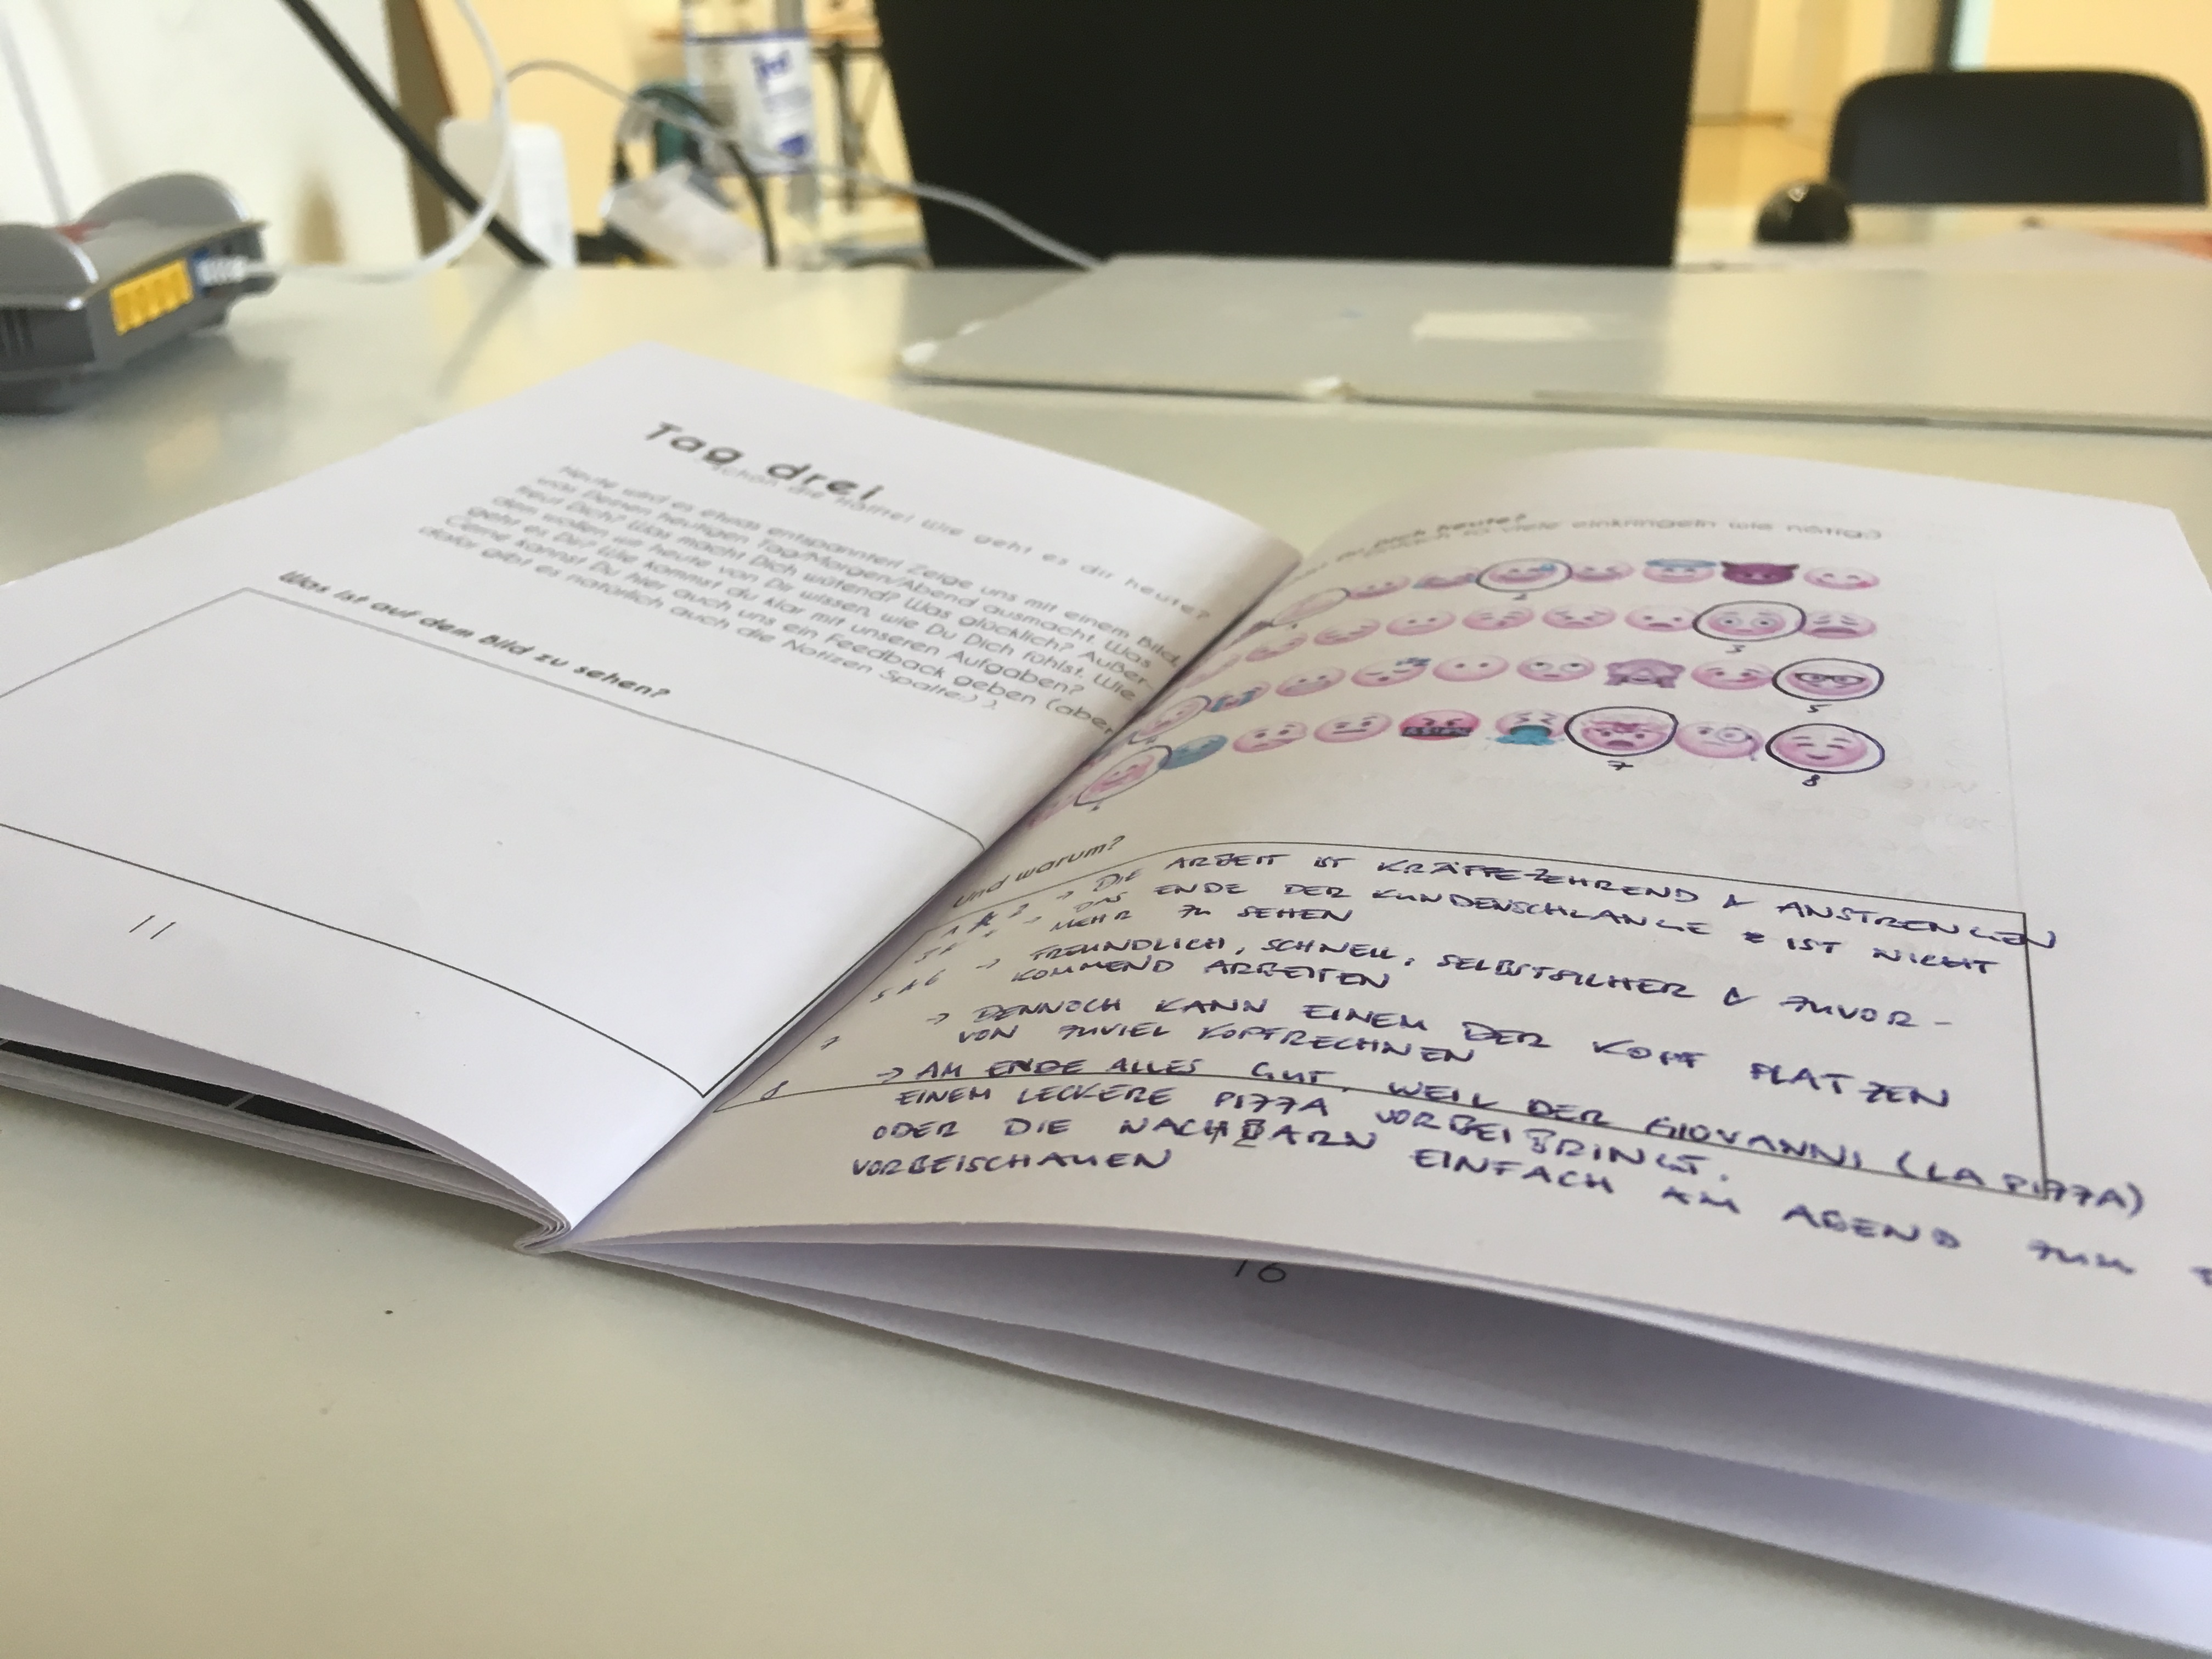 Tag drei
Schon die Hälfte! Wie geht es dir heute?
Heute wird es etwas entspannter! Zeige uns mit einem Bild,
was Deinen heutigen Tag/Morgen/Abend ausmacht. Was
freut Dich? Was macht Dich wütend? Was glücklich? Außer-
dem wollen wir heute von Dir wissen, wie Du Dich fühlst. Wie
geht es Dir? Wie kommst du klar mit unseren Aufgaben?
Gerne kannst Du hier auch uns ein Feedback geben (aber
dafür gibt es natürlich auch die Notizen Spalte:)
Was ist auf dem Bild zu sehen?
11
Du Dich heute?
so viele einkringeln wie nötig:)
2
3
5
7
8
Und warum?
→ DIE ARBEIT IST KRÄFTE-ZEHREND & ANSTRENGEND
→ DAS ENDE DER KUNDENSCHLANGE IST NICHT
MEHR ZU SEHEN
5 & 6 → FREUNDLICH, SCHNELL, SELBSTSICHER & ZUVOR-
KOMMEND ARBEITEN
7 → DENNOCH KANN EINEM DER KOPF PLATZEN
VON ZUVIEL KOPFRECHNEN
8 → AM ENDE ALLES GUT, WEIL DER GIOVANNI (LA PIZZA)
EINEM LECKERE PIZZA VORBEIBRINGT.
ODER DIE NACHBARN EINFACH AM ABEND ZUM
VORBEISCHAUEN
16